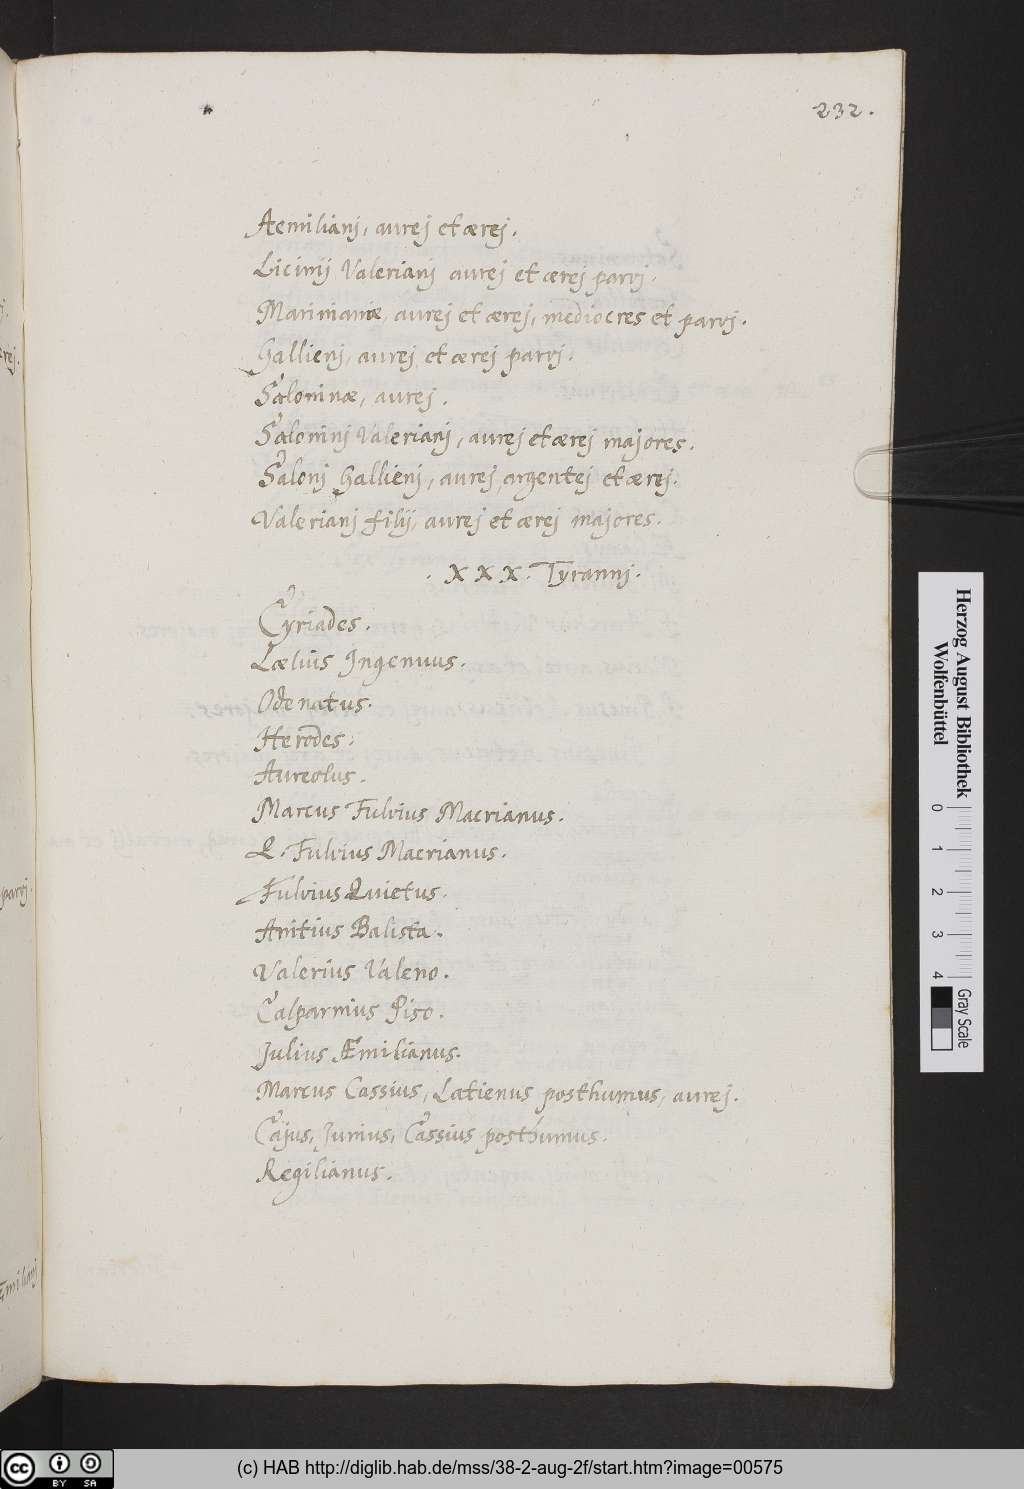 232.
Aemilianj, aurej et ærej.
Licinij Valerianj aurej et ærej parvj.
Marinianæ, aurej et ærej, mediocres et parvj.
Gallienj, aurej et ærej parvj.
Saloninæ, aurej.
Saloninj Valerianj, aurej et ærej majores.
Salonj Gallienj, aurej, argentej et ærej.
Valerianj filij, aurej et ærej majores.
. XXX. Tyrannj.
Cyriades.
Lælius Ingenuus.
Odenatus.
Herodes.
Aureolus.
Marcus Fulvius Macrianus.
Q. Fulvius Macrianus.
Fulvius Quietus.
Anitius Balista.
Valerius Valeno.
Calparnius Piso.
Julius Æmilianus.
Marcus Cassius, Latienus posthumus, aurej.
Cajus, Junius, Cassius posthumus.
Regilianus.
rej.
parvj.
Æmilianj
Herzog August Bibliothek
Wolfenbüttel
0 1 2 3 4
Gray Scale
cc BY SA
(c) HAB http://diglib.hab.de/mss/38-2-aug-2f/start.htm?image=00575